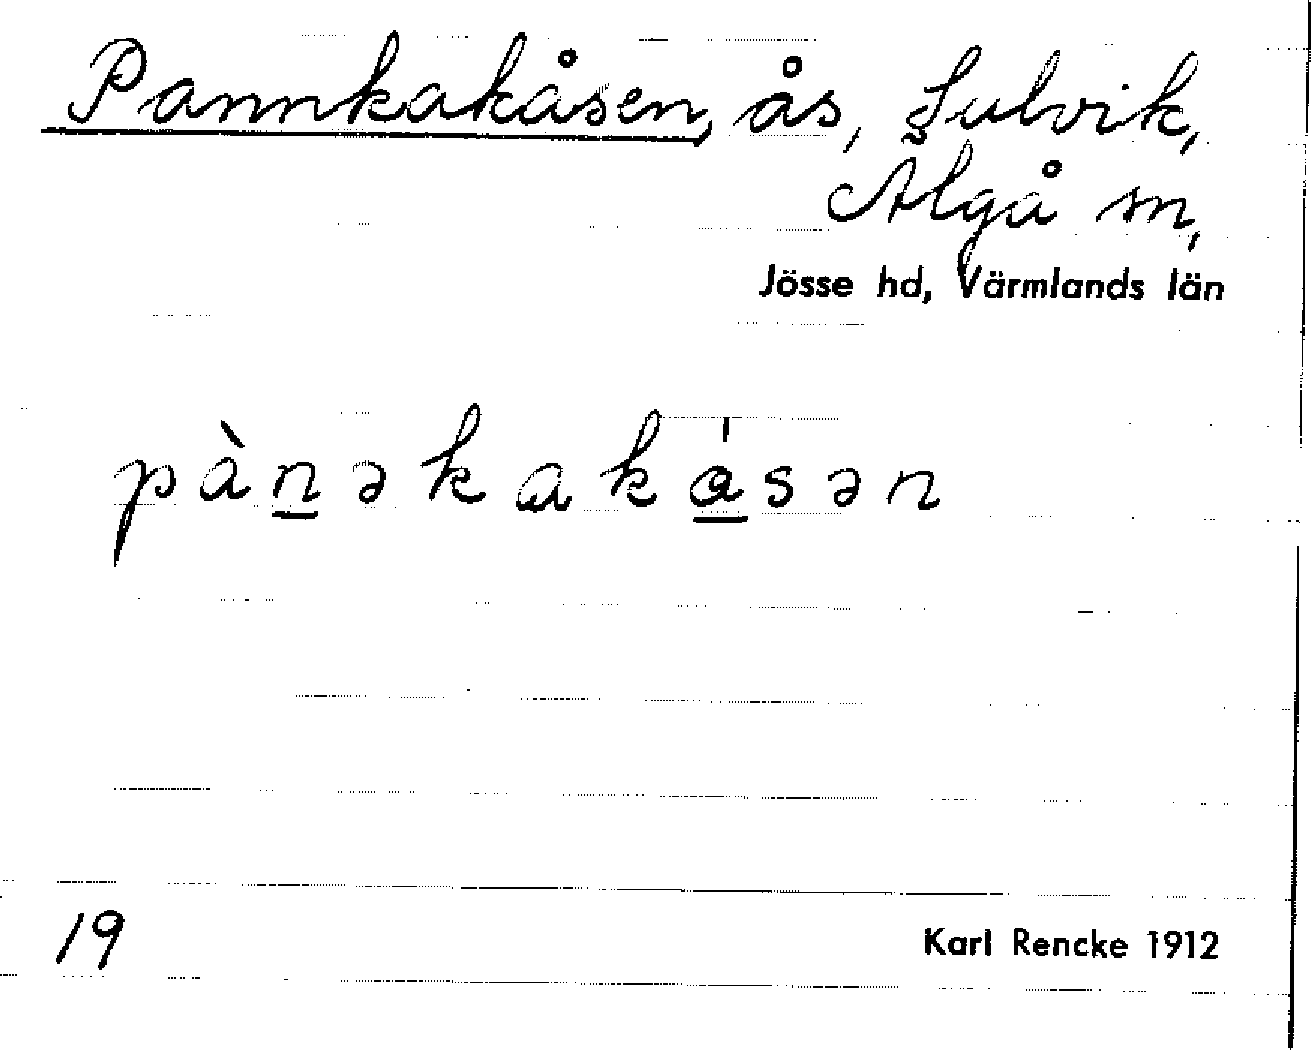 Pannkakåsen, ås, Sulvik,
Älgå sn,
Jösse hd, Värmlands län
pànəkakåsən
19
Karl Rencke 1912